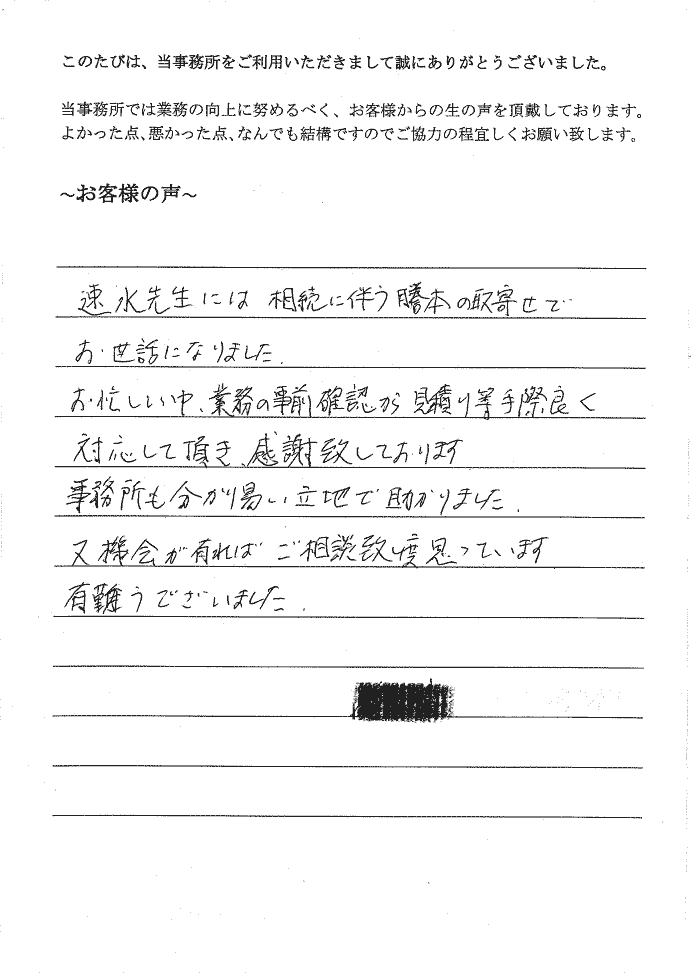 このたびは、当事務所をご利用いただきまして誠にありがとうございました。
当事務所では業務の向上に努めるべく、お客様からの生の声を頂戴しております。
よかった点、悪かった点、なんでも結構ですのでご協力の程宜しくお願い致します。
~お客様の声~
速水先生には 相続に伴う謄本の取寄せで
お世話になりました.
お忙しい中、業務の事前確認から見積り等手際良く
対応して頂き、感謝致しております
事務所も分かり易い立地で助かりました.
又機会が有ればご相談致し度思っています
有難うございました.